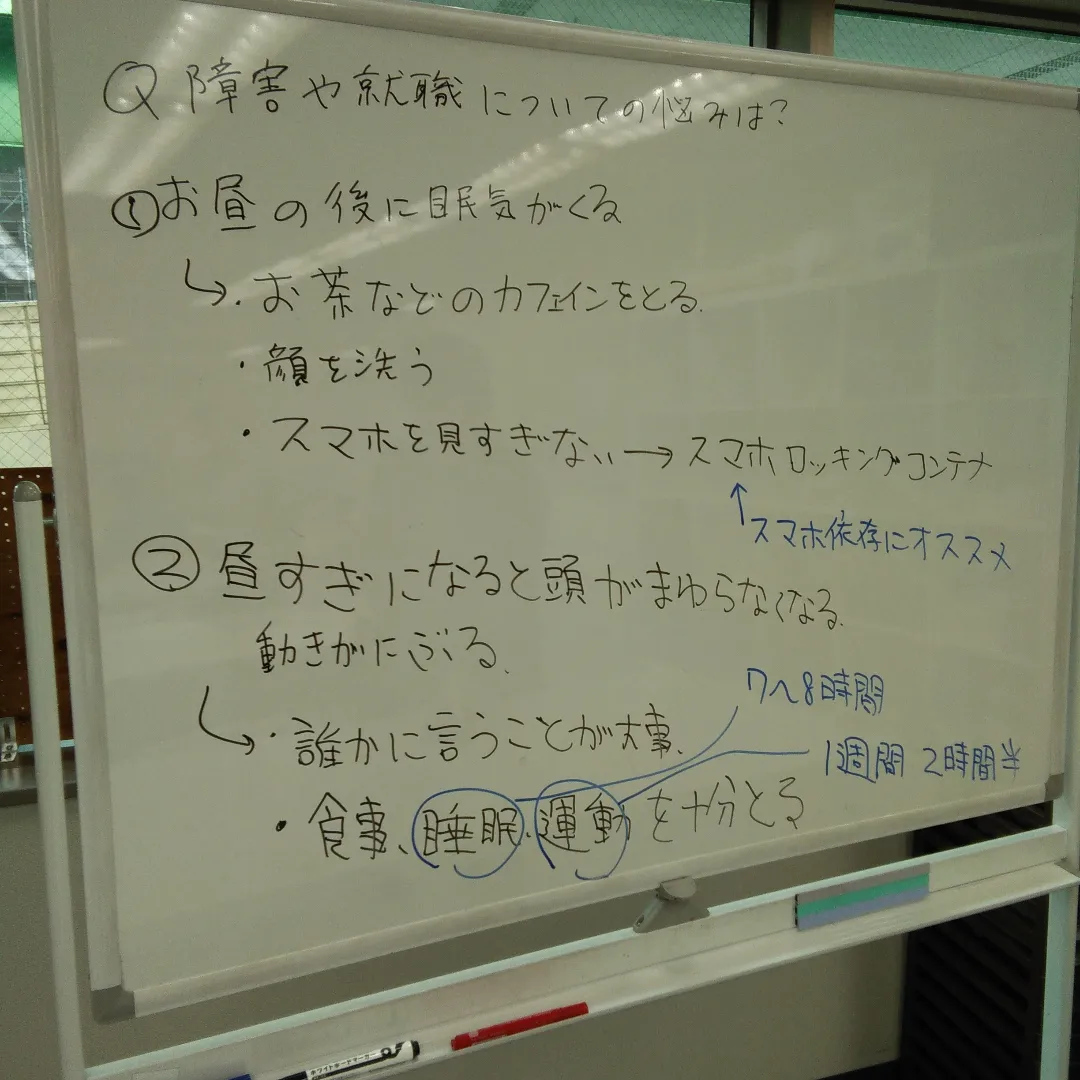 Q 障害や就職についての悩みは?
①お昼の後に眠気がくる
↳・お茶などのカフェインをとる.
・顔を洗う
・スマホを見すぎない→スマホロッキングコンテナ
↑スマホ依存にオススメ
②昼すぎになると頭がまわらなくなる.
動きがにぶる.
↳・誰かに言うことが大事.
7〜8時間
1週間 2時間半
・食事、睡眠、運動を十分とる
ホワイトボードマーカー